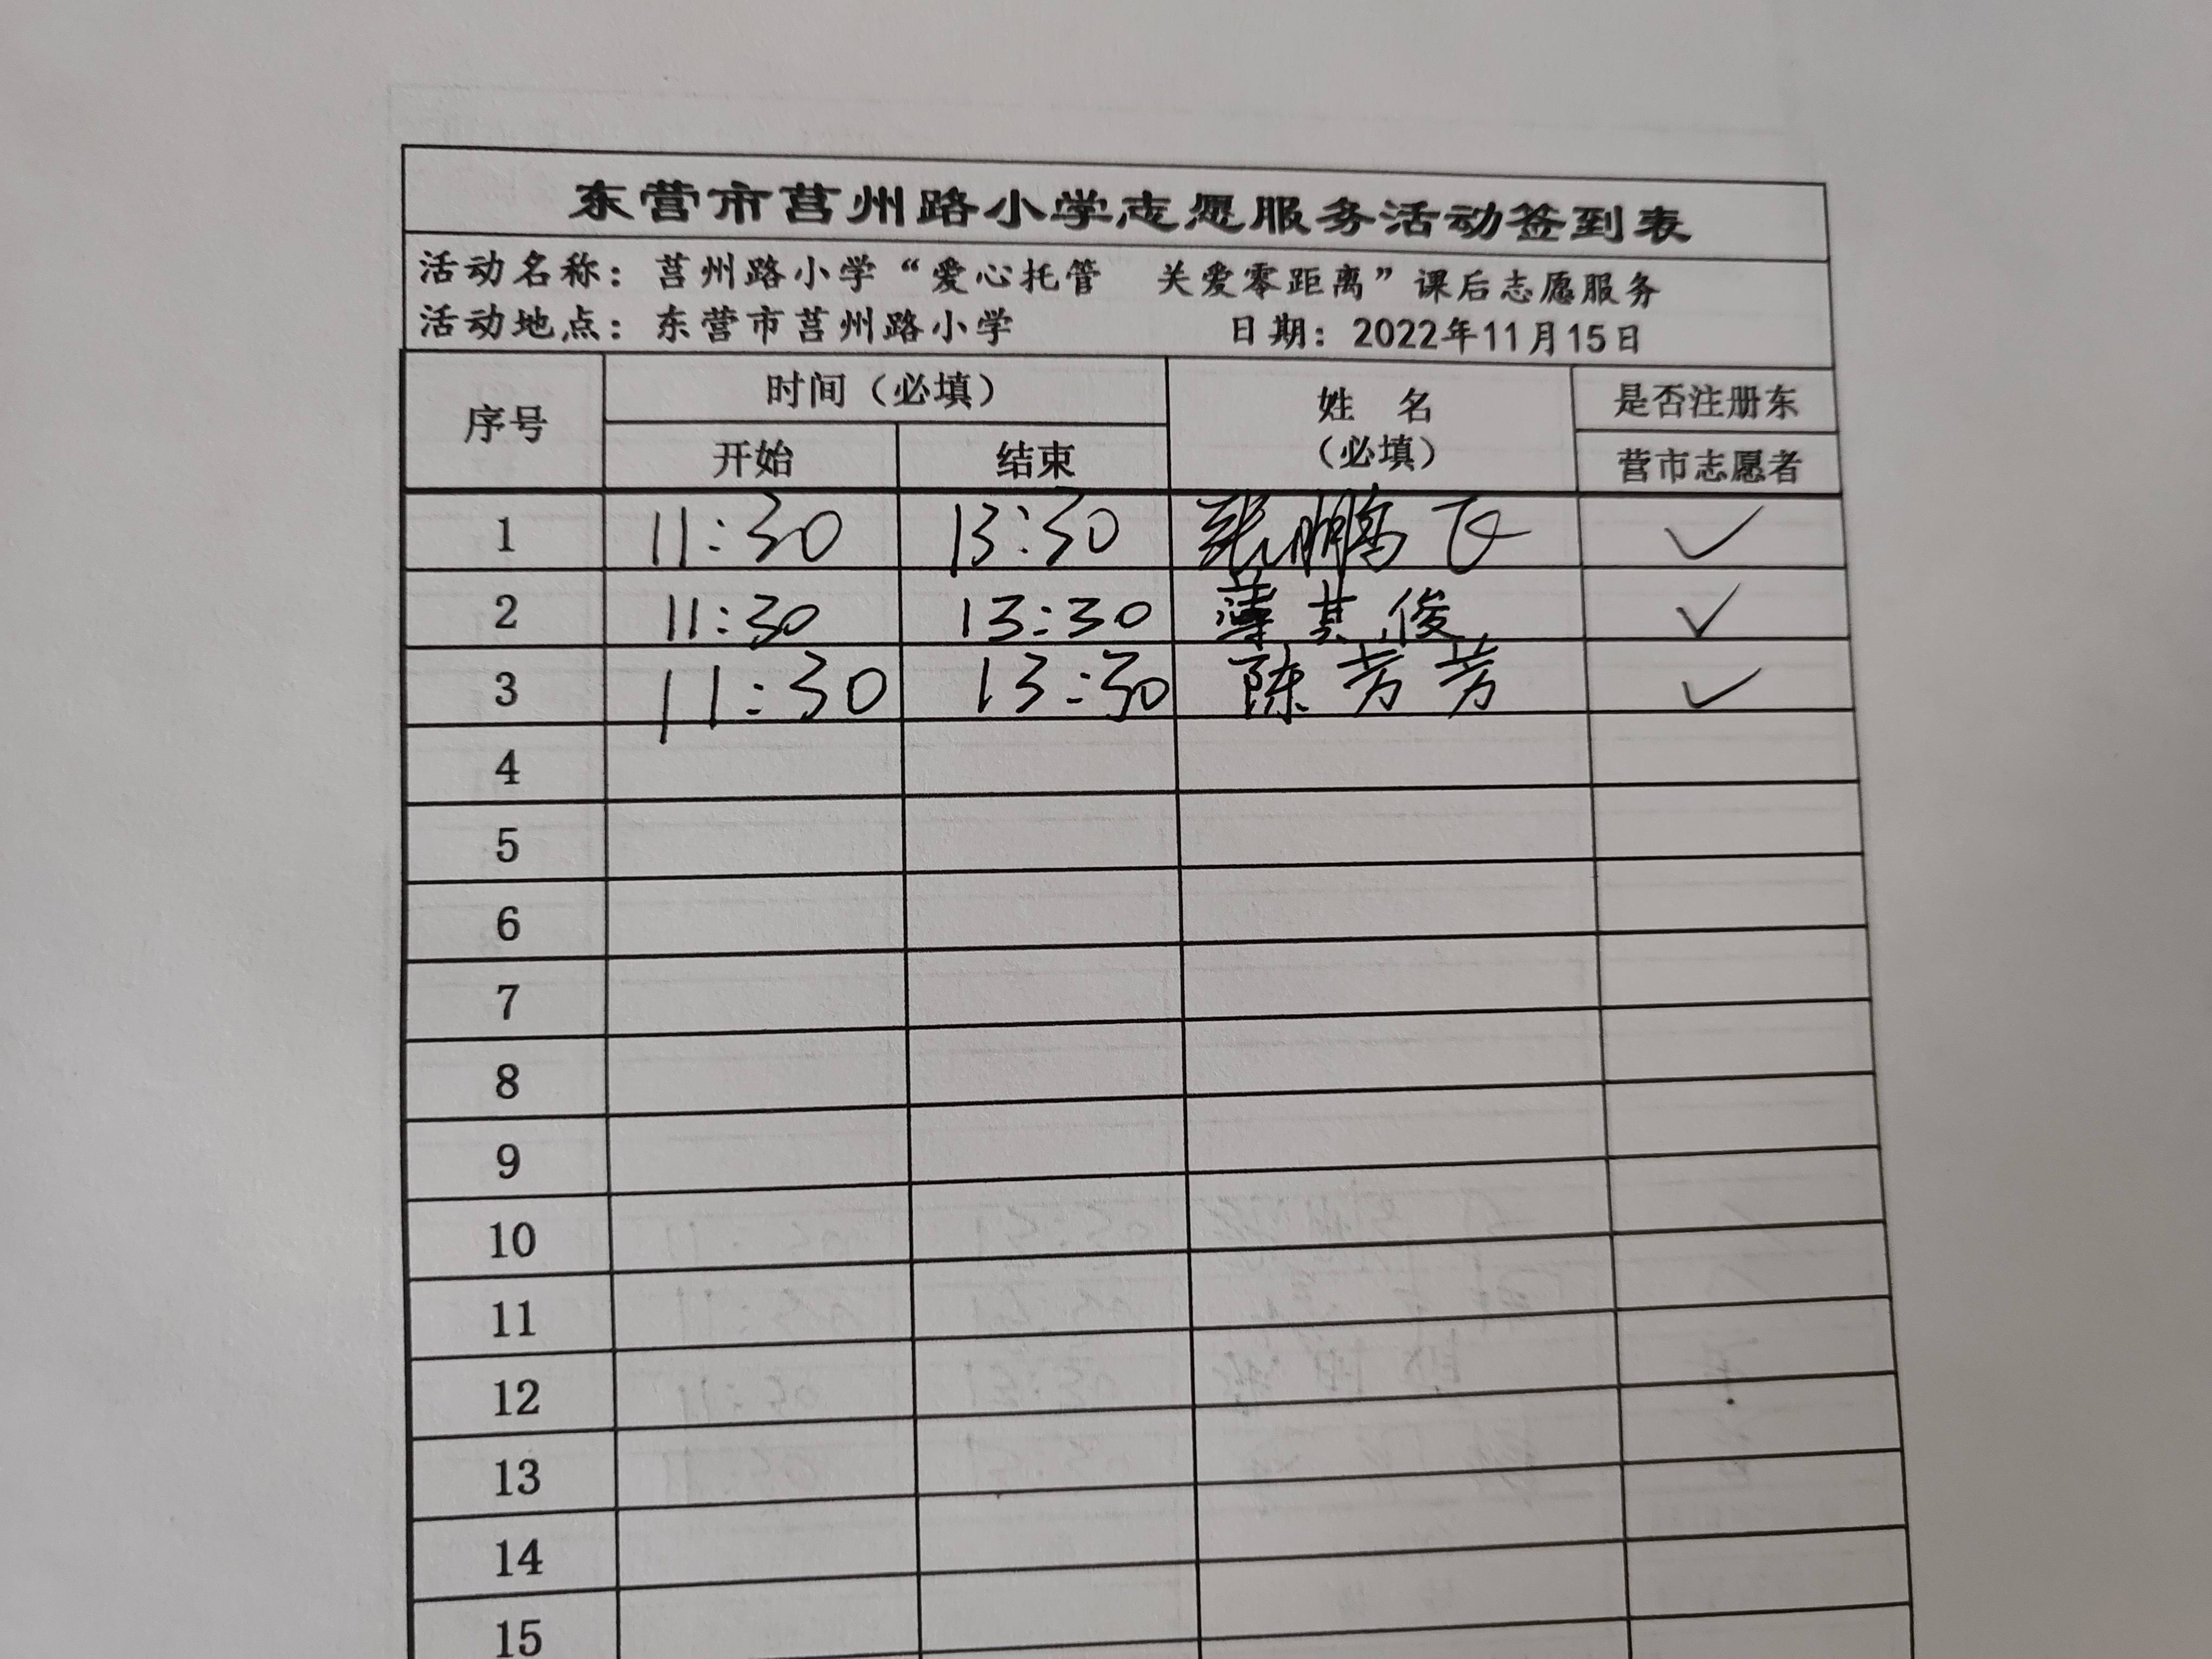 东营市莒州路小学志愿服务活动签到表
活动名称：莒州路小学“爱心托管 关爱零距离”课后志愿服务
活动地点：东营市莒州路小学 日期：2022年11月15日
序号 时间（必填） 姓 名 （必填） 是否注册东
开始 结束 营市志愿者
1 11:30 13:30 张鹏飞 ✓
2 11:30 13:30 薄其俊 ✓
3 11:30 13:30 陈芳芳 ✓
4
5
6
7
8
9
10
11
12
13
14
15